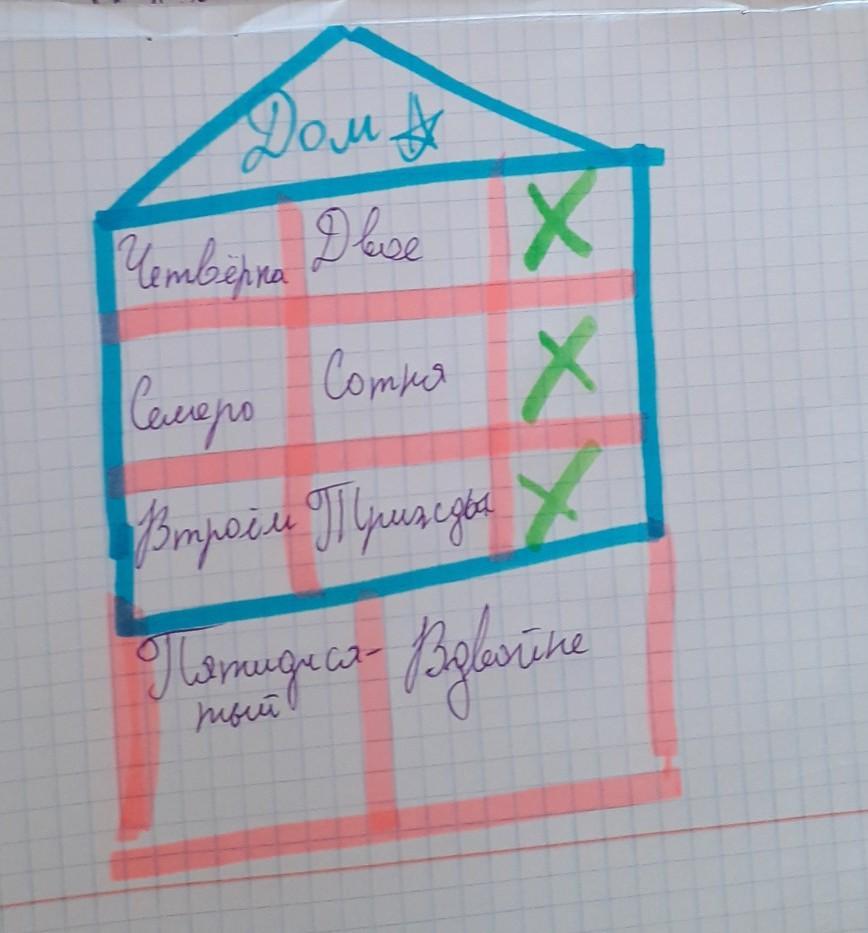 Дом
Четвёрка Двое
Семеро Сотня
Втроём Трижды
Пятидеся- Вдвойне
тый